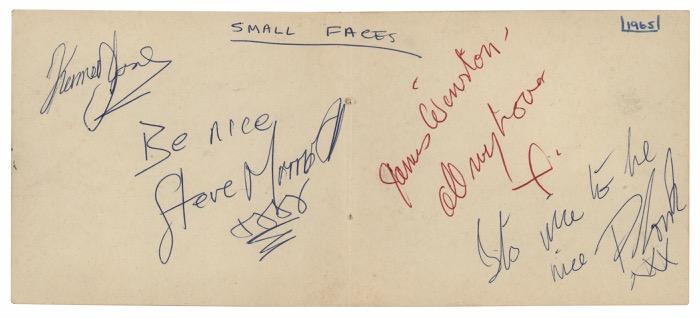 SMALL FACES
1965
Kenney Jones
Be nice
Steve Marriott
xxxx
James 'Winston'
all my love
x.
Its nice to be
nice P Lane
xxx